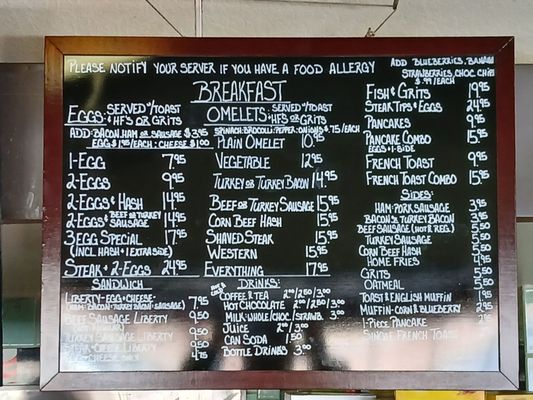 Please notify your server if you have a food allergy
Add blueberries, banana
strawberries, choc chips
$.99/each
Breakfast
Eggs: Served w/toast
& HFs or grits
Add: Bacon, ham or sausage $3.95
Egg $1.95/each: Cheese $1.00
1-Egg 7.95
2-Eggs 9.95
2-Eggs & Hash 14.95
2-Eggs & Beef or Turkey Sausage 14.95
3 Egg Special 17.95
(Incl. Hash + 1 Extra Side)
Steak & 2-Eggs 24.95
Sandwich
Liberty-Egg & Cheese- 7.95
Beef Sausage Liberty 9.50
Turkey Sausage Liberty 9.50
Steak-Cheese Liberty
Egg & Cheese Only 4.75
Omelets: Served w/toast
& HFs or grits
Spinach: Brocolli: Pepper: Onions $.75/each
Plain Omelet 10.95
Vegetable 12.95
Turkey or Turkey Bacon 14.95
Beef or Turkey Sausage 15.95
Corn Beef Hash 15.95
Shaved Steak 15.95
Western 15.95
Everything 17.95
Drinks:
Coffee & Tea 2.00/2.50/3.00
Hot Chocolate 2.00/2.50/3.00
Milk: Whole/Choc/Strawb. 3.00
Juice 2.00/3.00
Can Soda 1.50
Bottle Drinks 3.00
Fish & Grits 19.95
Steak Tips & Eggs 24.95
Pancakes 9.95
Pancake Combo 15.95
Eggs & 1-Side
French Toast 9.95
French Toast Combo 15.95
Sides:
Ham: Pork Sausage 3.95
Bacon or Turkey Bacon 3.95
Beef Sausage (Hot or Reg.) 5.50
Turkey Sausage 5.50
Corn Beef Hash 5.50
Home Fries 4.95
Grits 5.50
Oatmeal 5.50
Toast & English Muffin 1.95
Muffin-Corn & Blueberry 2.95
1-Piece Pancake
Single French Toast